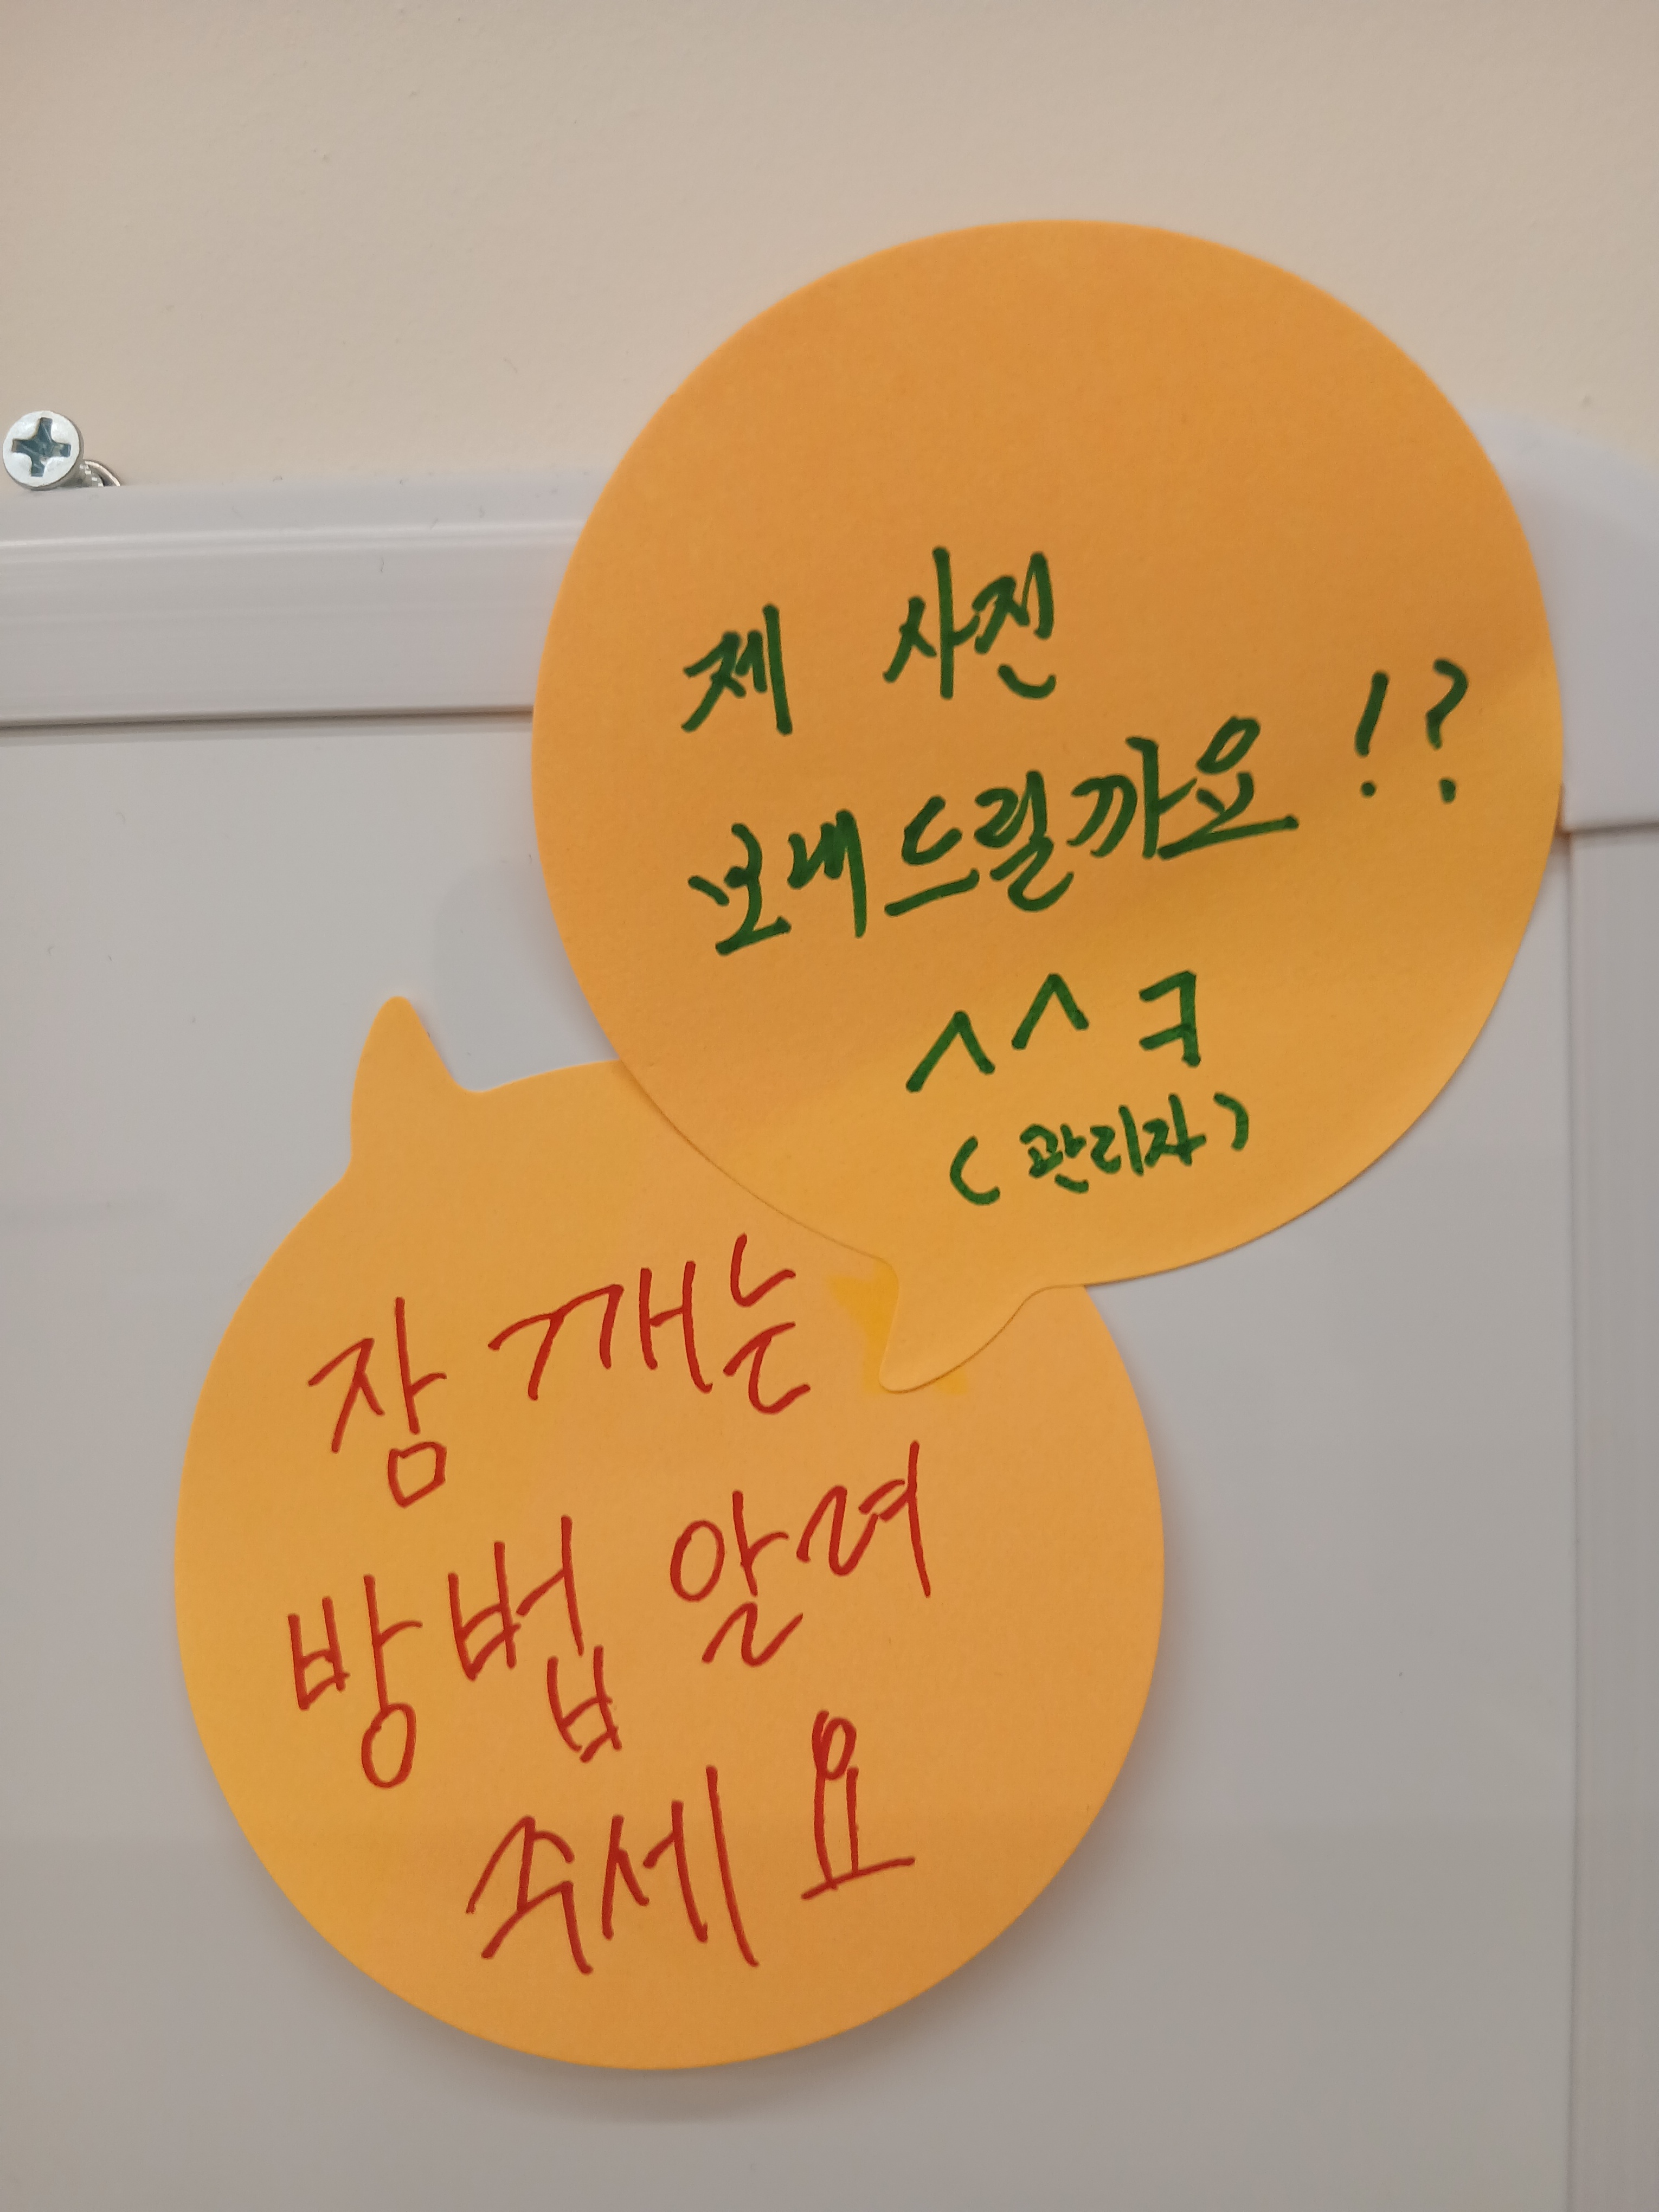 제 사진
보내드릴까요!?
^^ㅋ
(관리자)
잠 깨는
방법 알려
주세요